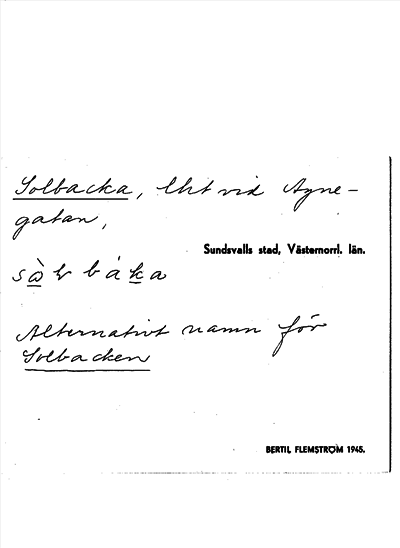 Solbacka, lht vid Agne-
gatan,
Sundsvalls stad, Västernorrl. län.
Alternativt namn för
Solbacken
BERTIL FLEMSTRÖM 1945.